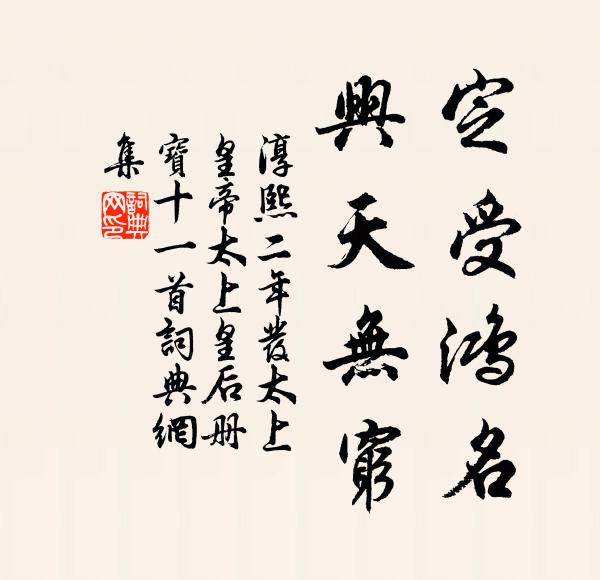 定受鴻名
與天無窮
淳熙二年發太上
皇帝太上皇后册
寶十一首詞典網
集
詞典
网印